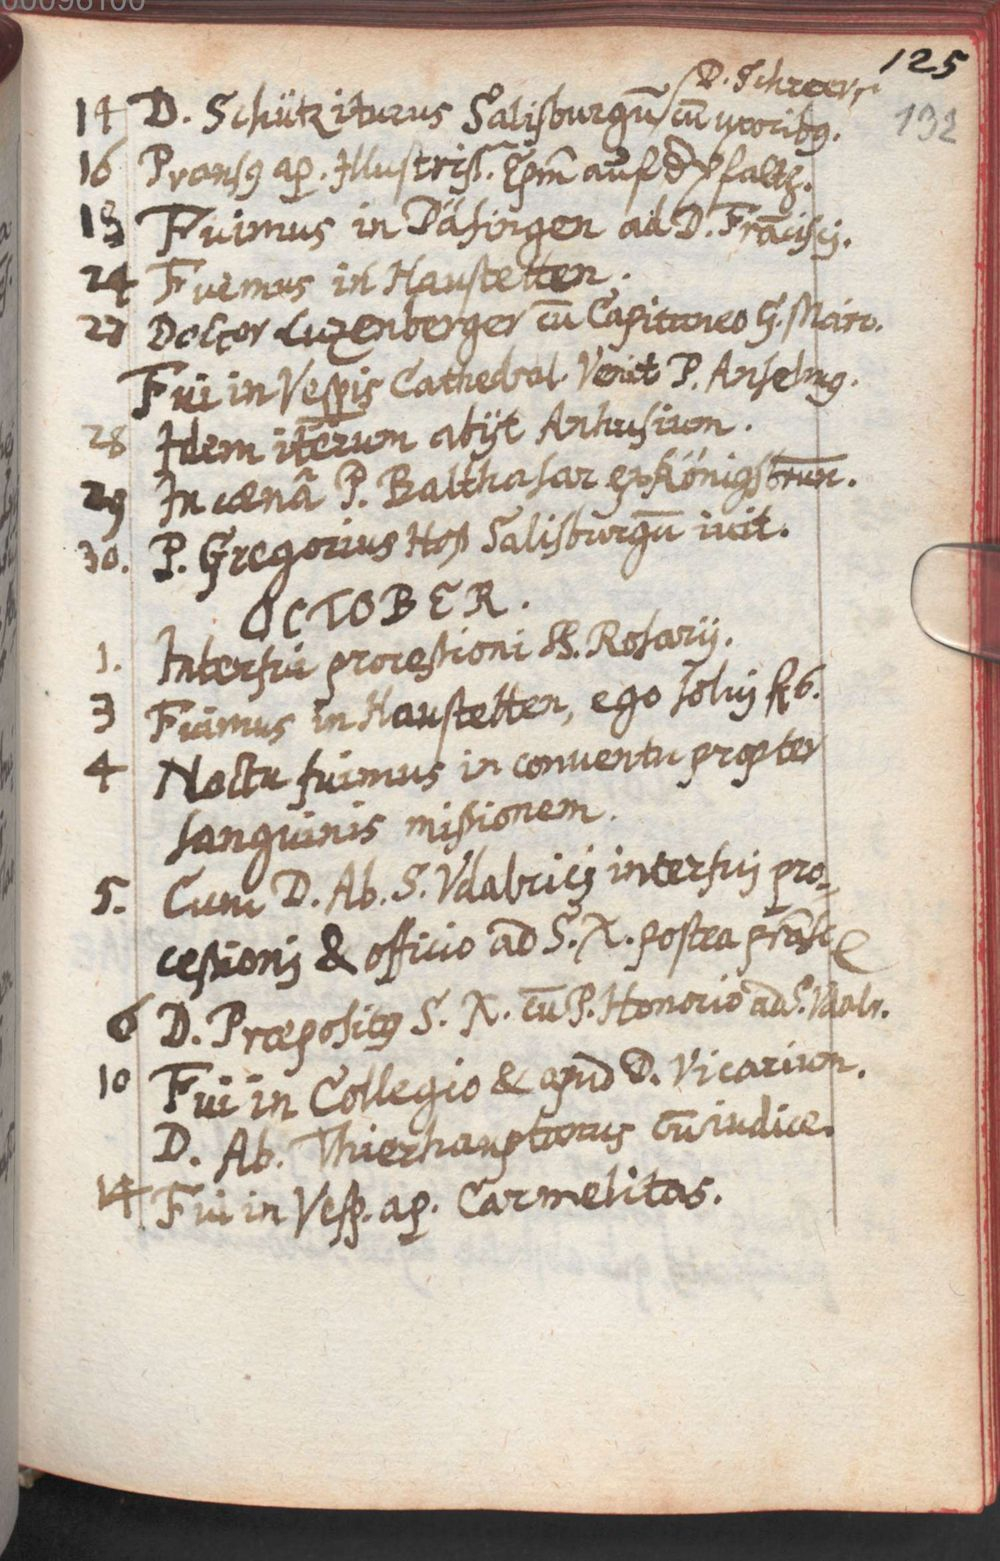 00096100
125
132
D. Schrecrs
14 D. Schütz iturus Salisburgū cū uxoribꝯ.
16 Pransꝯ ap. Illustriss. Epm̄ auf d Pfaltz.
18 Fuimus in Däsingen ad D. Frāciscj.
24 Fuimus in Haustetten.
27 Doctor Luzenberger cū Capitaneo G. Marc.
Fui in Vesp̄is Cathedral. Venit P. Anselmꝯ.
28 Idem iterum abijt Anhusium.
29 In cænā P. Balthasar ex Königsbrun̄.
30. P. Gregorius Hos Salisburgū iuit.
OCTOBER.
1. Interfui processioni SS. Rosarij.
3 Fuimus in Haustetten, ego soluj f 6.
4 Noctu fuimus in conuentu propter
sanguinis missionem.
5. Cum D. Ab. S. Vdalricj interfuj pro-
cessionj & officio ad S. X. postea prāsi
6 D. Præpositꝯ S. X. cū P. Honorio ad S. Vdalr.
10 Fui in Collegio & apud D. Vicarium.
D. Ab. Thierhauptanus cū iudice.
14 Fui in Vesp. ap. Carmelitas.